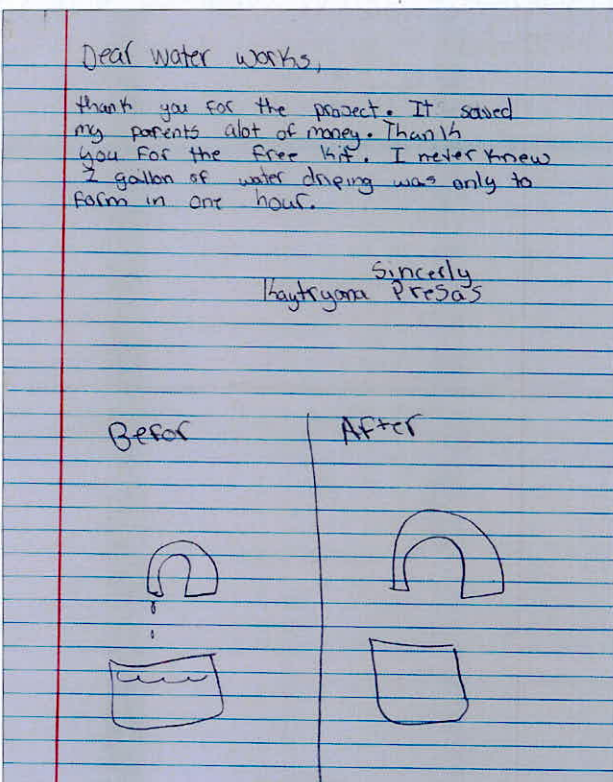 Dear water works,
thank you for the project. It saved
my parents alot of money. Thank
you for the free kit. I never knew
gallon of water driping was only to
form in one hour.
Sincerly
Kaytryana Presas
Befor
After